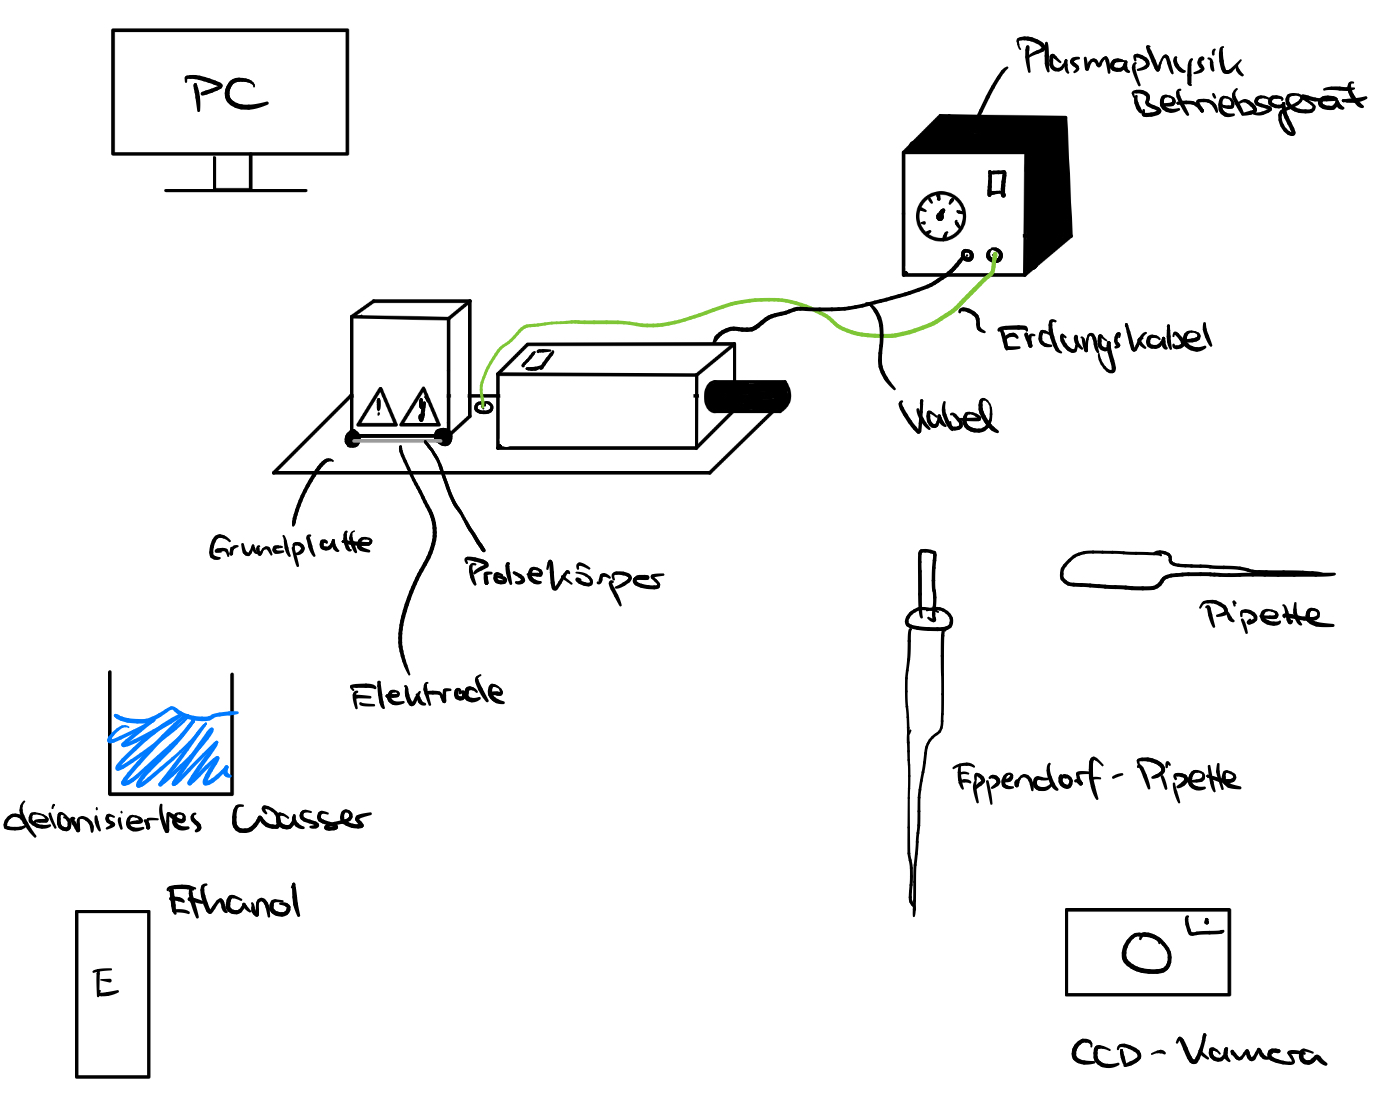 PC
Plasmaphysik
Betriebsgerät
Erdungskabel
Kabel
! 
Grundplatte
Probekörper
Elektrode
Pipette
Eppendorf-Pipette
deionisiertes Wasser
Ethanol
E
CCD-Kamera